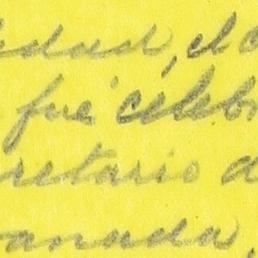 edad, el c
fué céleb
retario d
anada,